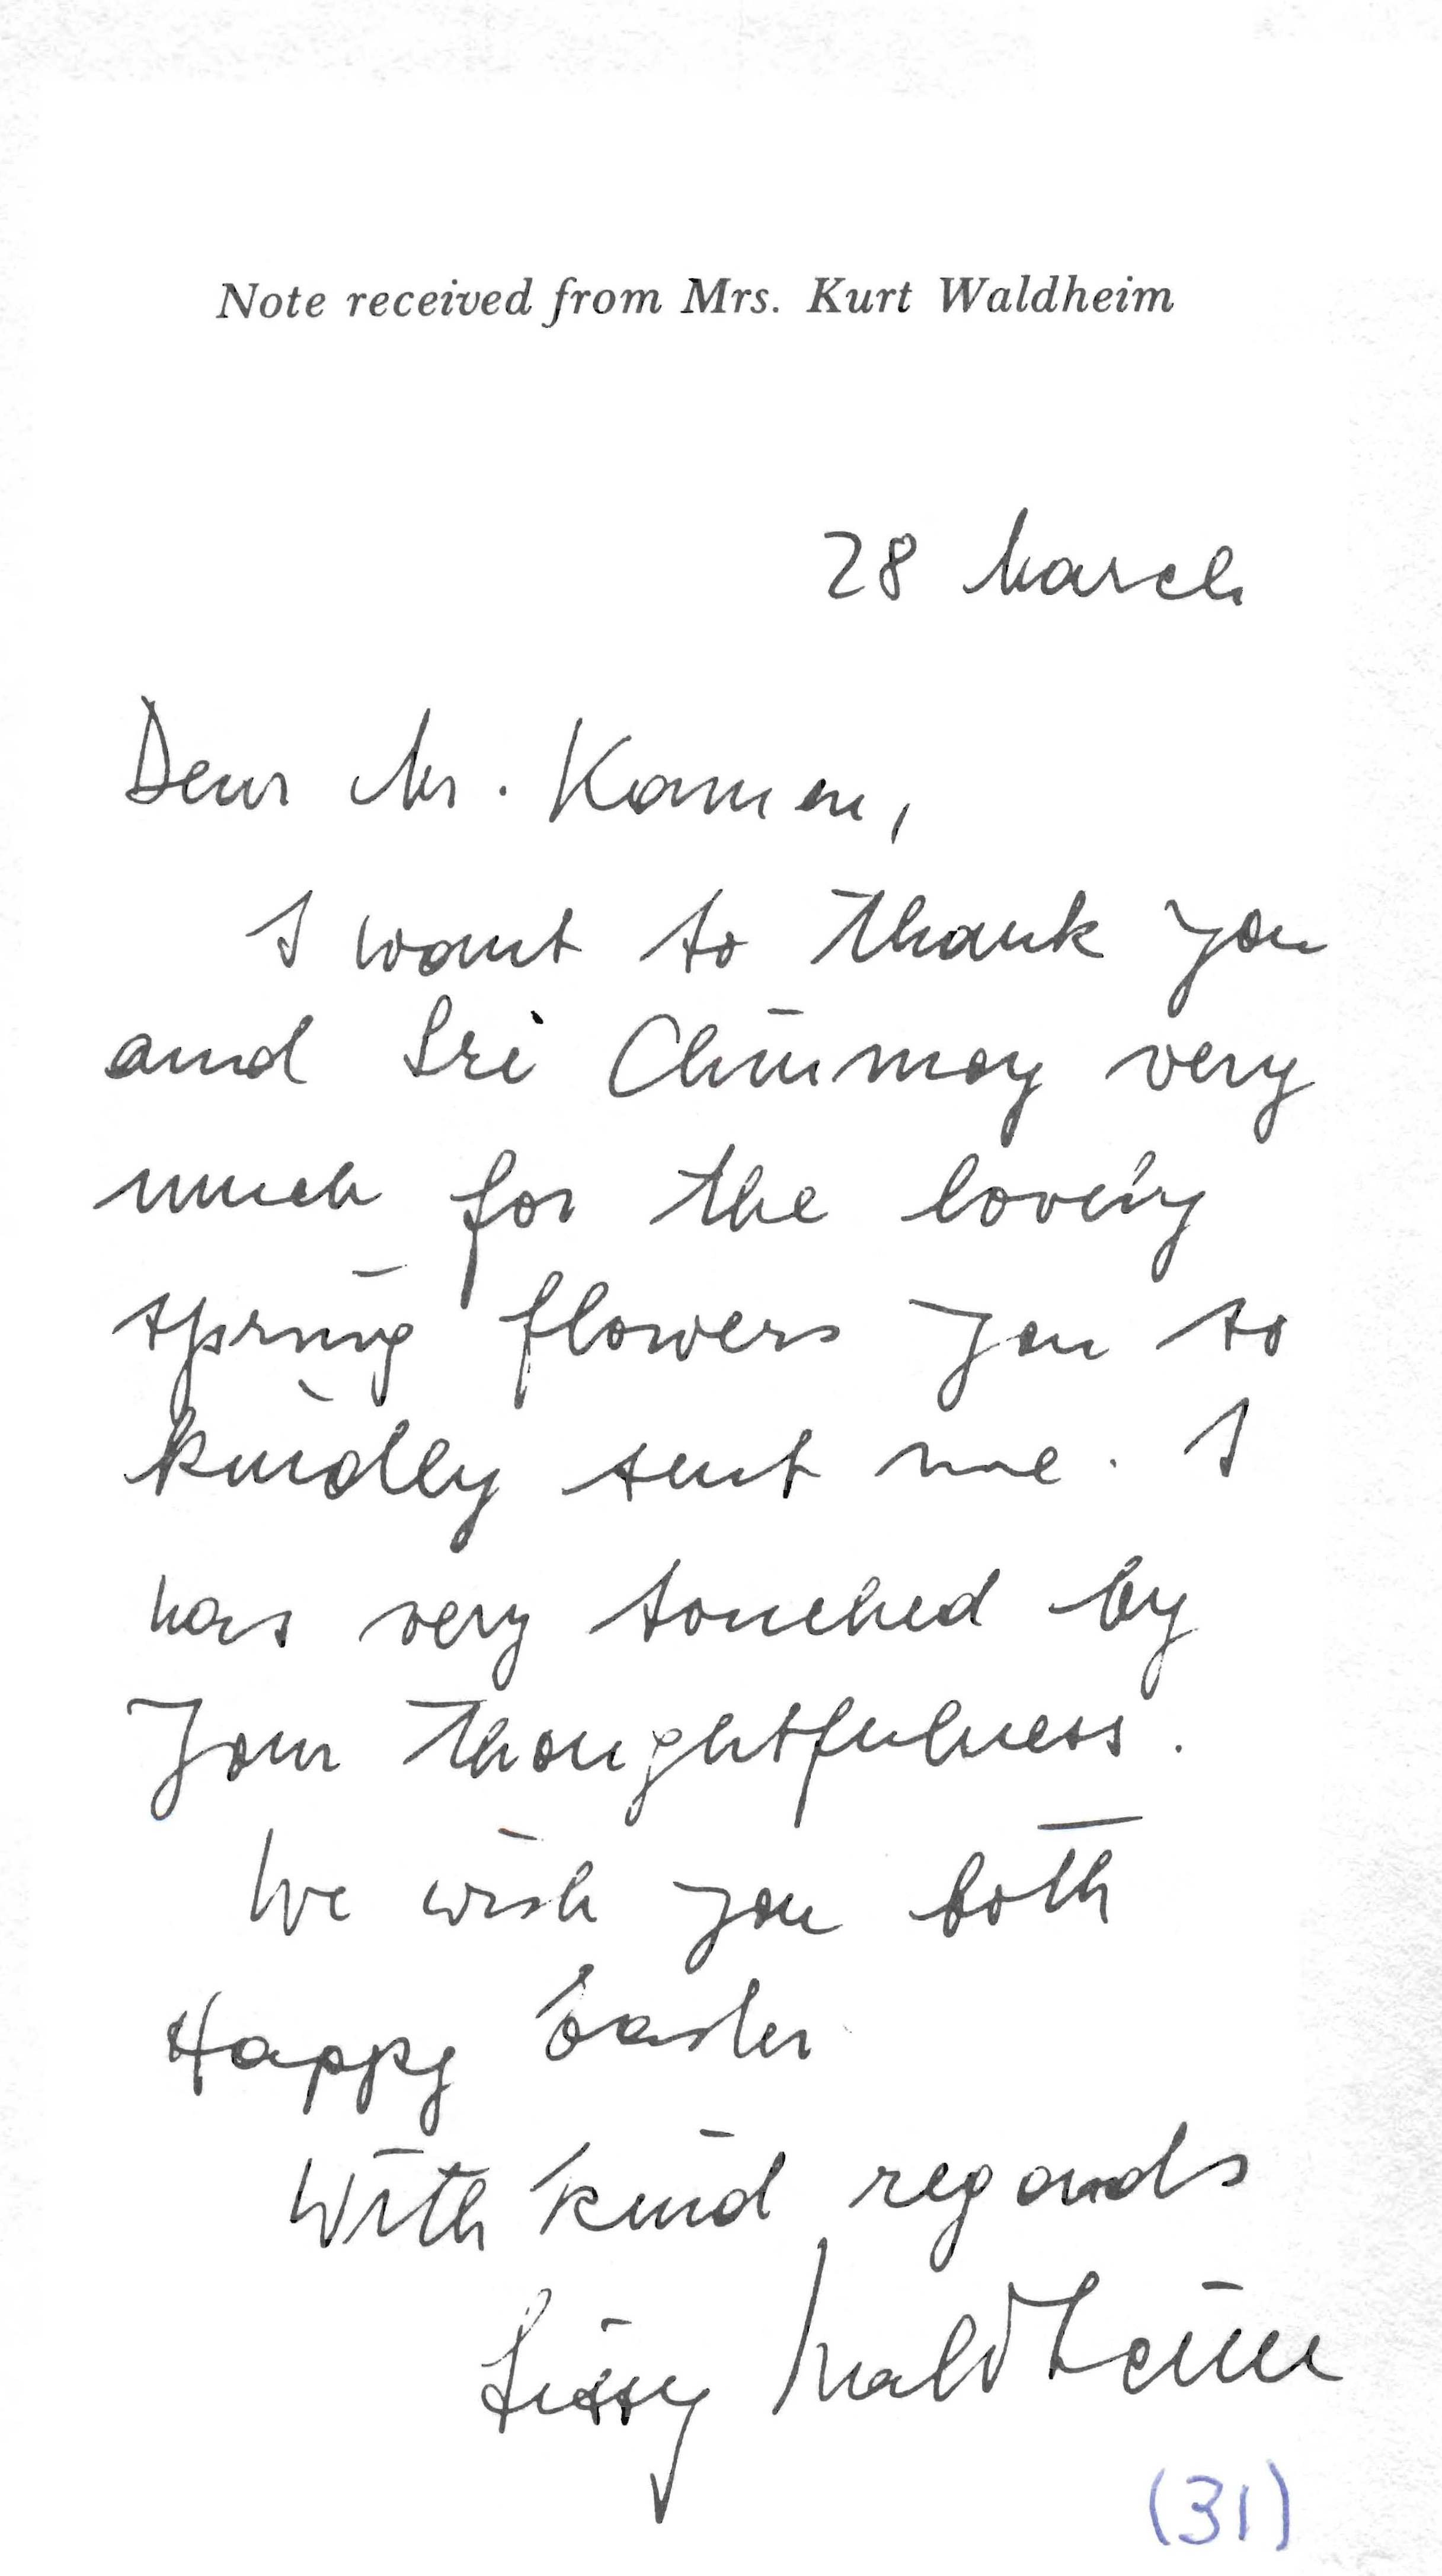 Note received from Mrs. Kurt Waldheim
28 March
Dear Mr. Kamen,
I want to thank you
and Sri Chinmoy very
much for the lovely
spring flowers you so
kindly sent me. I
was very touched by
your thoughtfulness.
We wish you both
Happy Easter
With kind regards
Sissy Waldheim
(31)